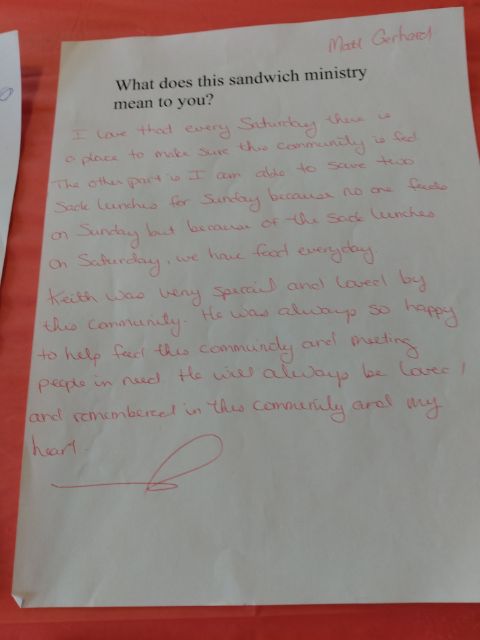 Matt Gerhard
What does this sandwich ministry
mean to you?
I love that every Saturday there is
a place to make sure this community is fed
The other part is I am able to save two
Sack lunches for Sunday because no one feeds
on Sunday but because of the Sack lunches
on Saturday, we have food everyday
Keith was very special and loved by
this community. He was always so happy
to help feed this community and meeting
people in need. He will always be loved
and remembered in this community and my
heart.